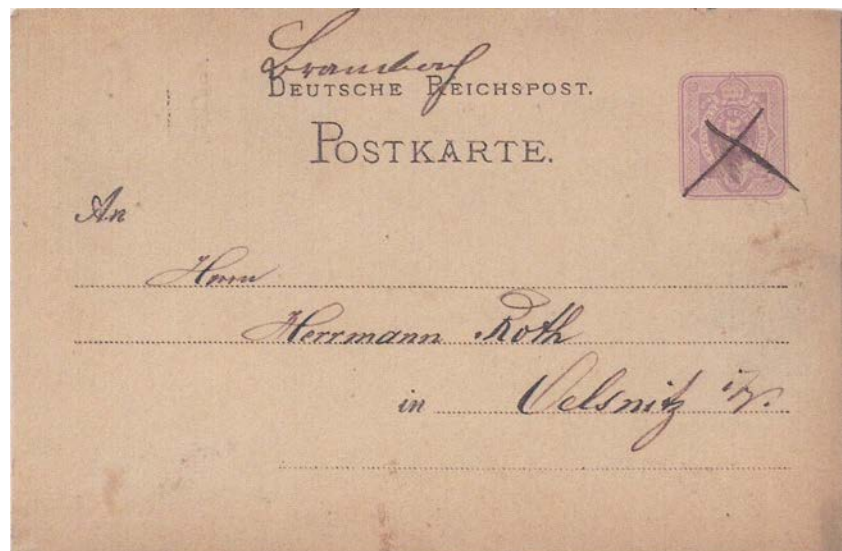 Brambach
DEUTSCHE REICHSPOST.
POSTKARTE.
An
Herrn
Herrmann Roth
in Oelsnitz i/V.